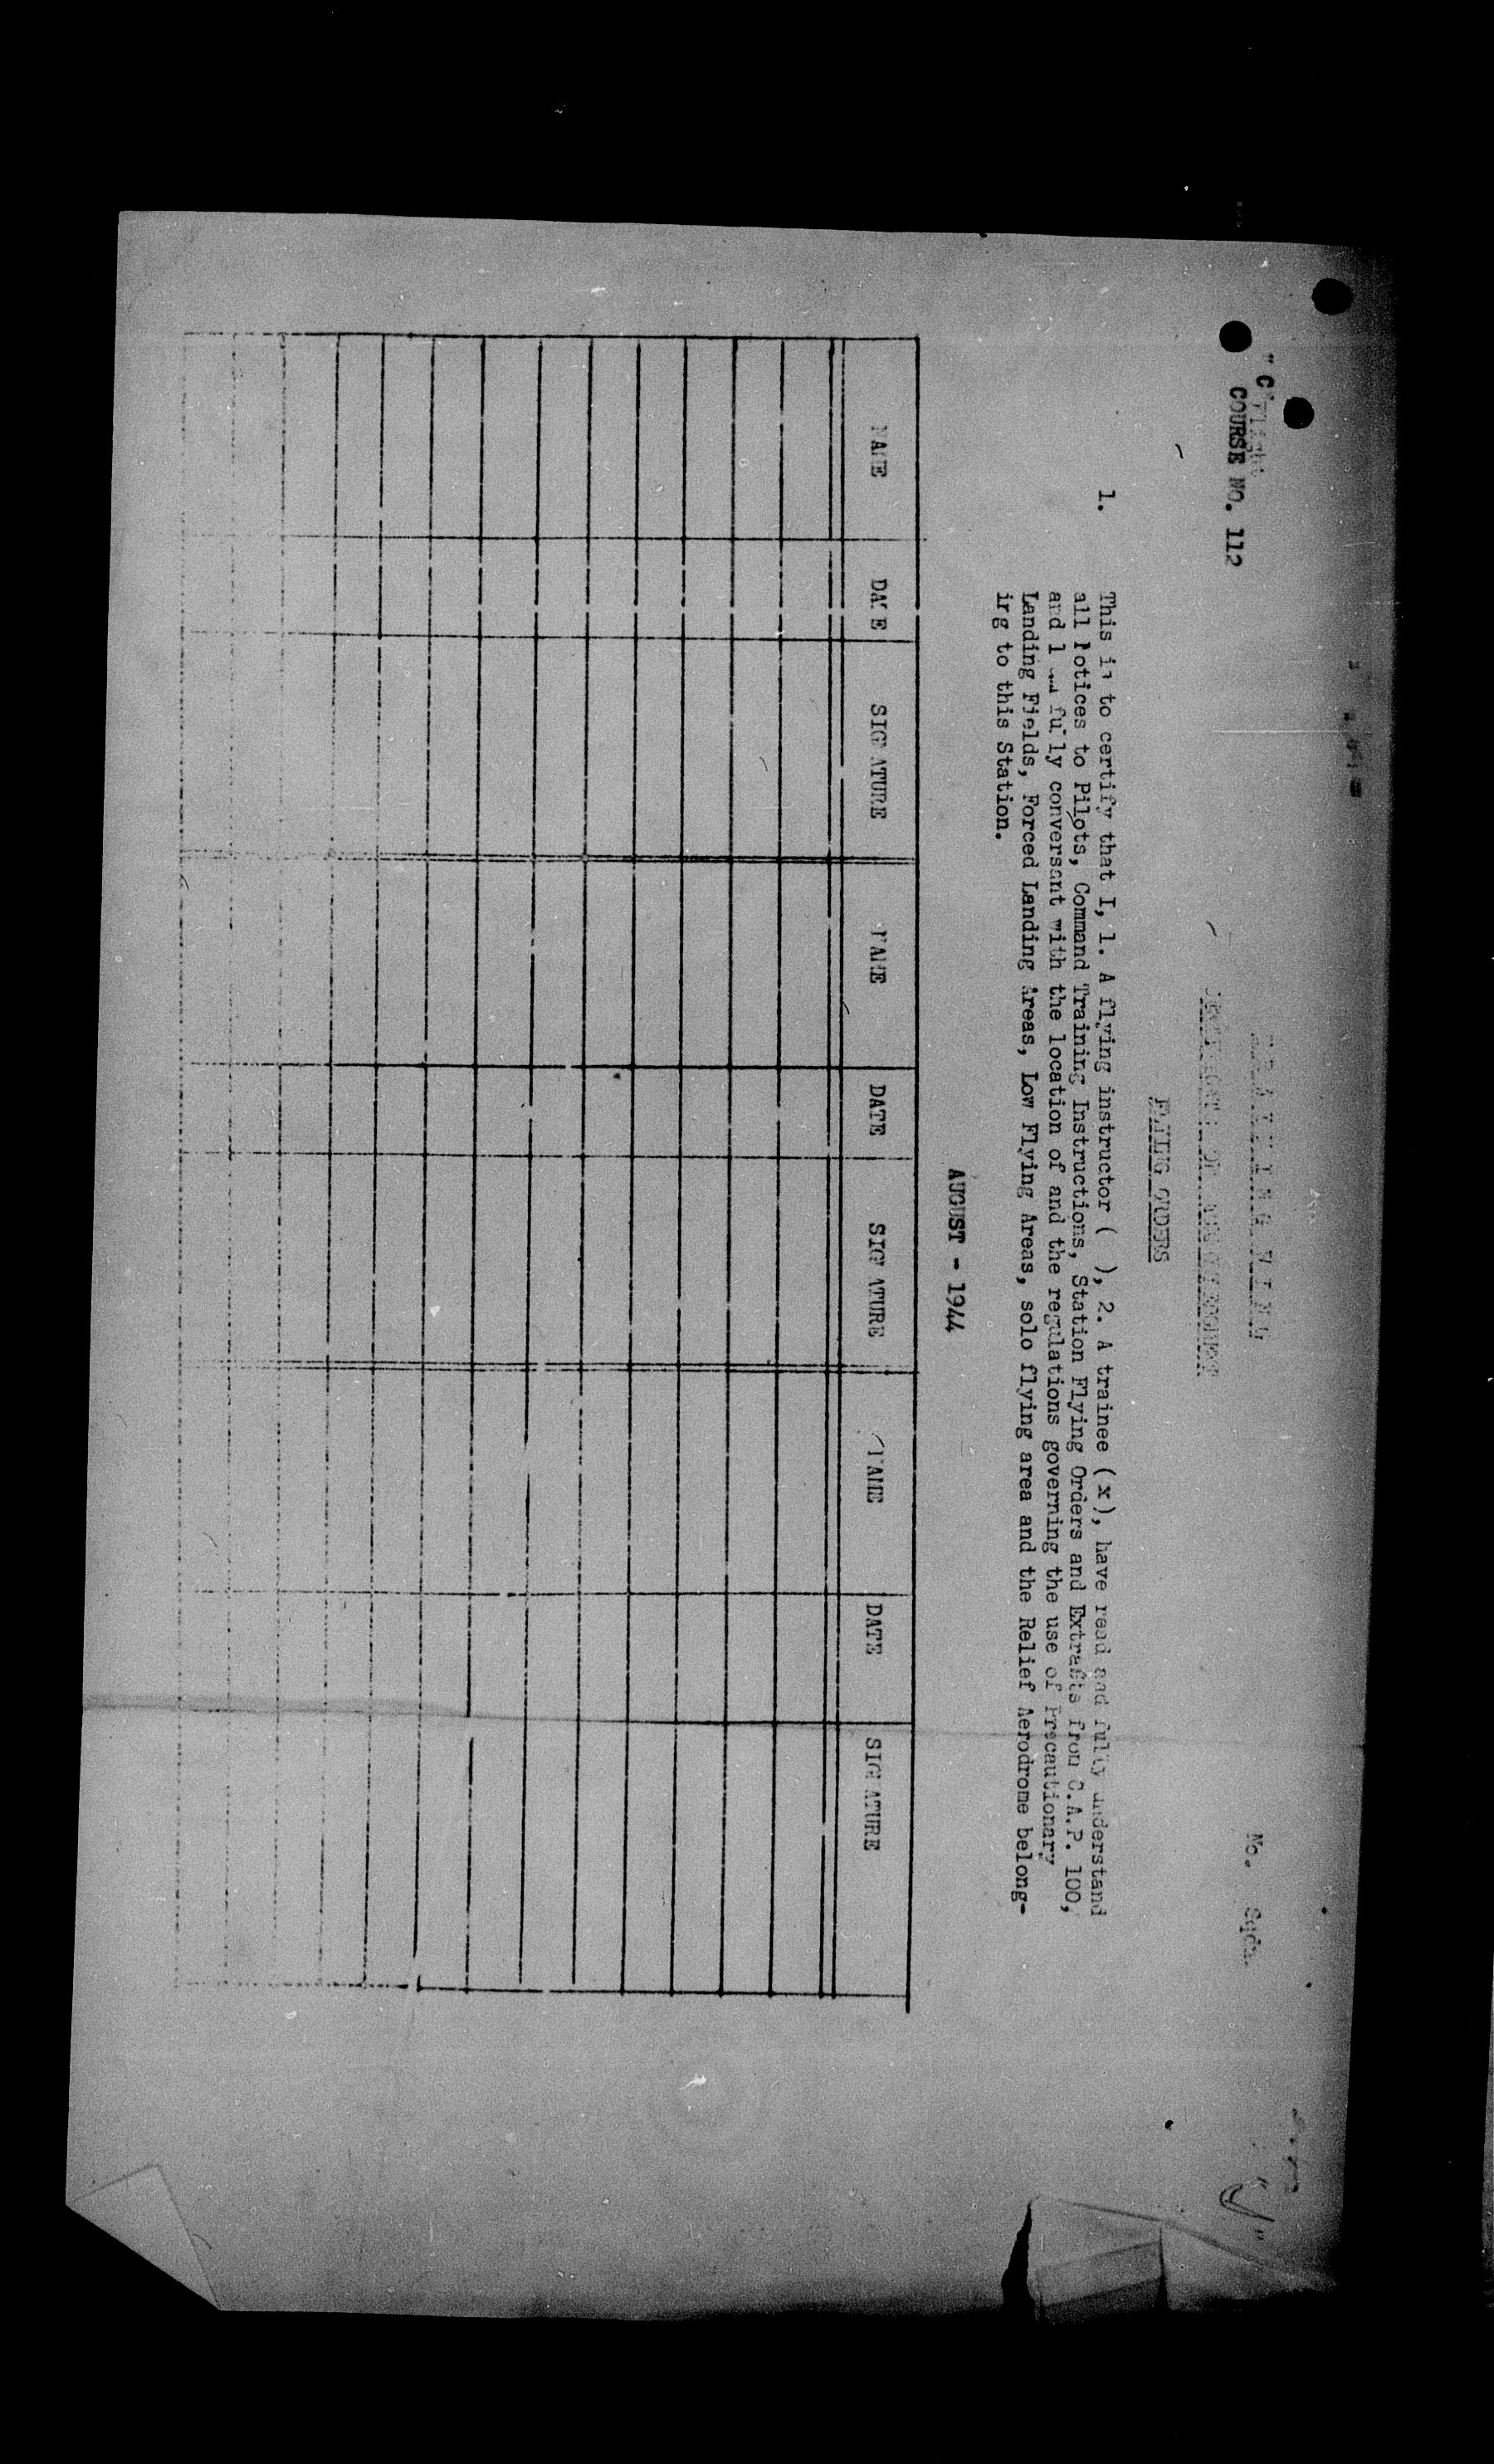 "C" Flight
COURSE NO. 112
No. Sqdn.
TRAINING WING
FLYING ORDERS
1. This is to certify that I, 1. A flying instructor ( ), 2. A trainee (x), have read and fully understand
all Notices to Pilots, Command Training Instructions, Station Flying Orders and Extracts from C.A.P. 100,
and I am fully conversant with the location of and the regulations governing the use of Precautionary
Landing Fields, Forced Landing Areas, Low Flying Areas, solo flying area and the Relief Aerodrome belong-
ing to this Station.
AUGUST - 1944
NAME DATE SIGNATURE NAME DATE SIGNATURE NAME DATE SIGNATURE